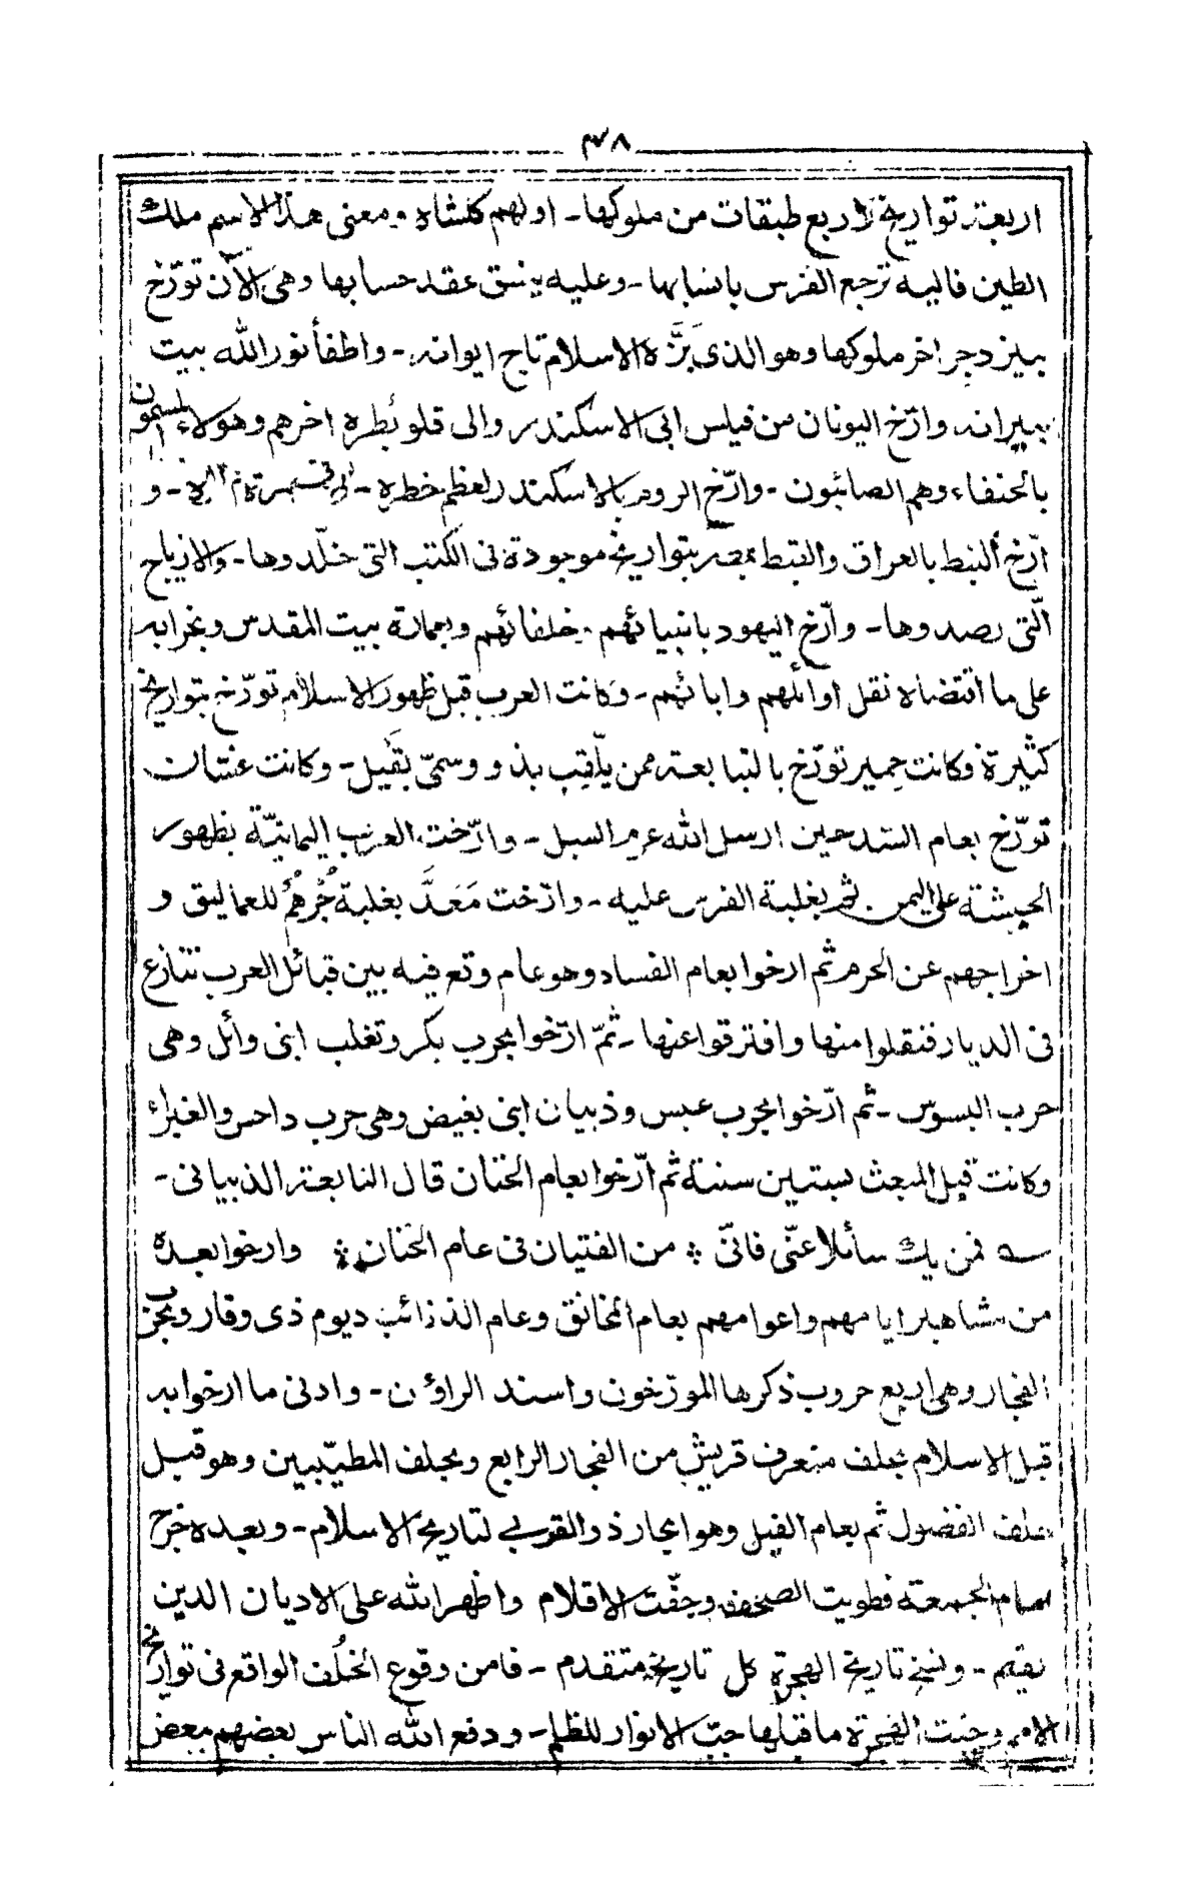 ٣٨
اربعة تواريخ لاربع طبقات من ملوكها - اولهم كلشاه ومعنى هذا الاسم ملك
الطين فاليه ترجع الفرس بانسابها - وعليه ينسق عقد حسابها وهى الآن تورّخ
بيزدجر اخر ملوكها وهو الذى بَزَّه الاسلام تاج ايوانه - واطفأ نور الله بيت
نيرانه وارّخ اليونان من فيلبس ابى الاسكندر والى قلوبطره اخرهم وهولاء المسمون
بالحنفاء وهم الصائبون - وارّخ الروم بالاسكندر لعظم خطره - و
ارّخ النبط بالعراق والقبط بمصر بتواريخ موجودة فى الكتب التى خلّدوها - والازياج
الّتى رصدوها - وارّخ اليهود بانبيائهم وخلفائهم وبعمارة بيت المقدس وبخرابه
على ما اقتضاه نقل اوائلهم واباءهم - وكانت العرب قبل ظهور الاسلام تورّخ بتواريخ
كثيرة فكانت حمير تورّخ بالتبابعة ممن يلقب بذو وسمىّ بقَيل - وكانت غسّان
تورّخ بعام السّد حين ارسل الله عرم السيل - وارّخت العرب اليمانيّة بظهور
الحبشة على اليمن ثم بغلبة الفرس عليه - وارّخت مَعَدَّ بغلبة جُرهُم للعماليق و
اخراجهم عن الحرم ثم ارخوا بعام الفساد وهو عام وقع فيه بين قبائل العرب تنازع
فى الديار فنقلوا منها وافترقوا عنها - ثمّ ارّخوا بحرب بكر وتغلب ابنى وائل وهى
حرب البسوس - ثم ارّخوا بحرب عبس وذبيان ابنى بغيض وهى حرب داحس والغبراء
وكانت قبل المبعث بستين سنة ثم ارّخوا بعام الخنان قال النابغة الذبيانى -
فمن يك سائلا عنّى فانّى ؞ من الفتيان فى عام الخنان ؞ وارخوا بعده
من مشاهير ايامهم واعوامهم بعام المخانق وعام الذنائب ويوم ذى وقار وبحرب
الفجار وهى اربع حروب ذكرها المورّخون واسند الراوُن - وادنى ما ارخوا به
قبل الاسلام بحلف منصرف قريش من الفجار الرابع وبحلف المطيّبين وهو قبل
حلف الفضول ثم بعام الفيل وهو الجار ذو القربى لتاريخ الاسلام - وبعده خرج
امام الجمعة فطويت الصحف وجفّت الاقلام واظهر الله على الاديان الدين
القيم - ونسخ تاريخ الهجرة كل تاريخ متقدم - فامن وقوع الخلف الواقع فى تواريخ
الامم وجبّت الهجرة ما قبلها جبّ الانوار للظلم - ودفع الله الناس بعضهم ببعض